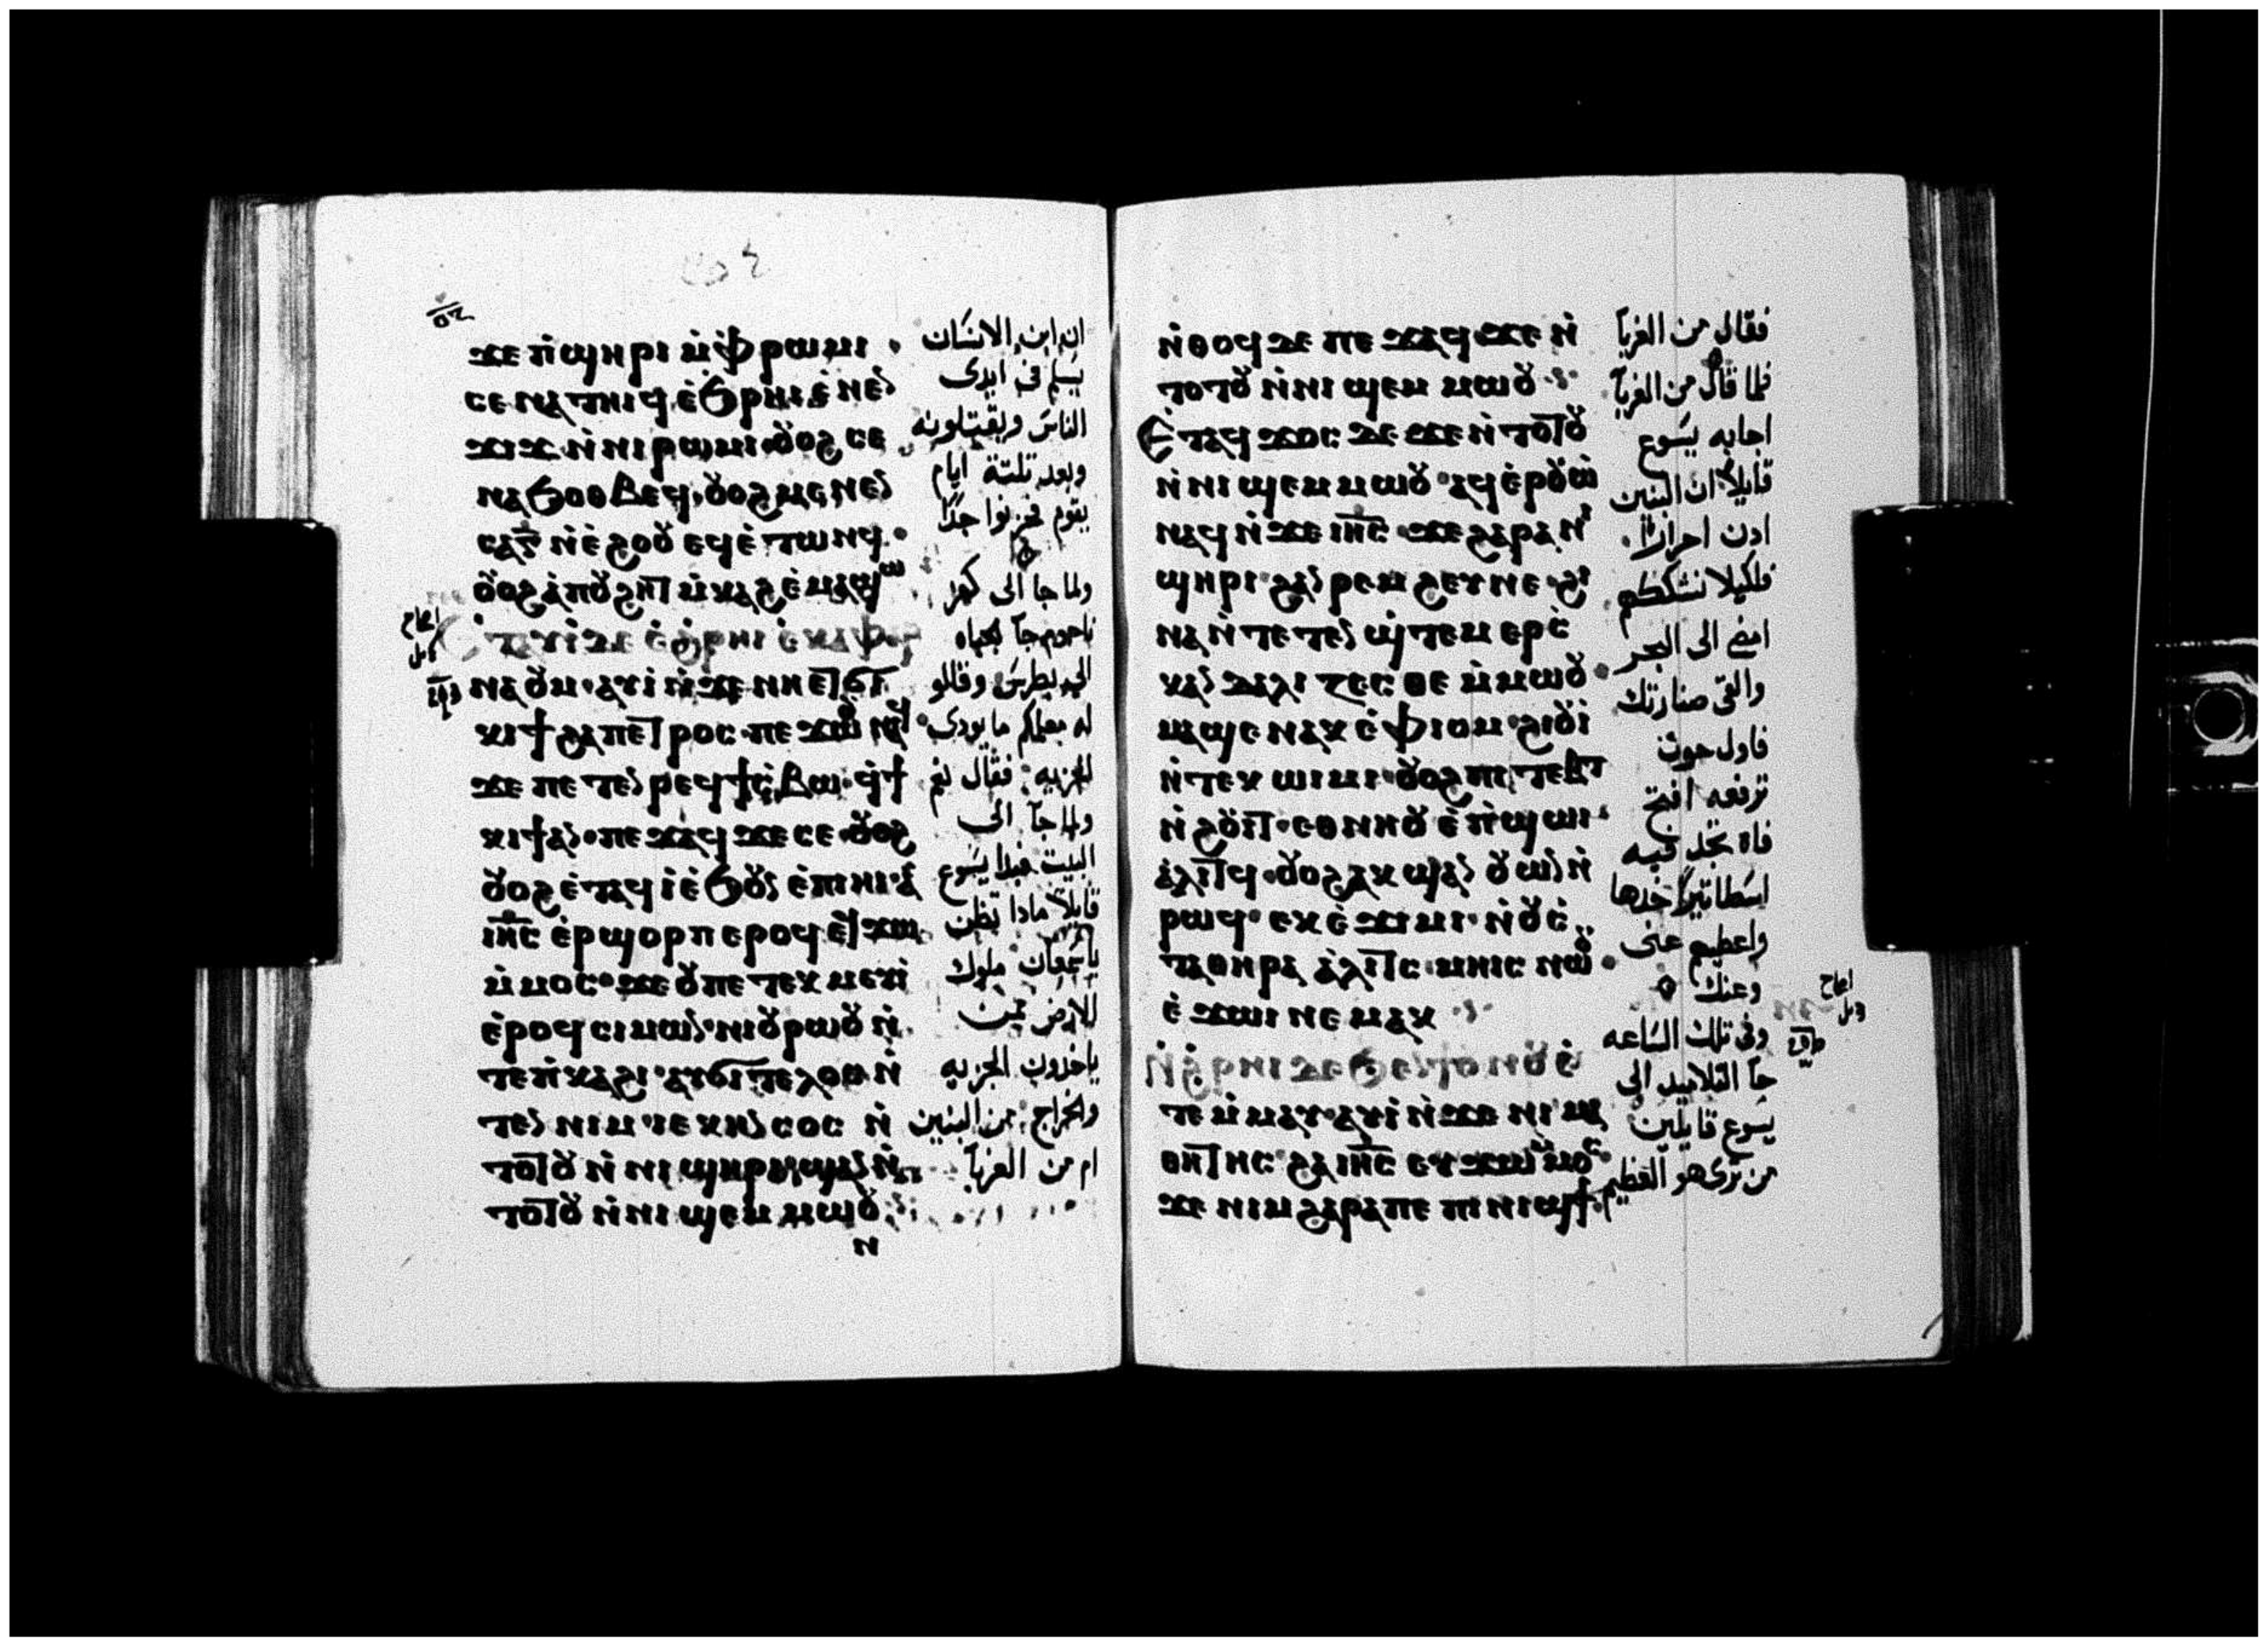 ϫⲉ ⲡ̀ϣⲏⲣⲓ ⲙ̀ⲫ̀ⲣⲱⲙⲓ ·
ⲥⲉⲛⲁⲧⲏⲓϥ ⲉ̀ϧⲣⲏⲓ ⲉ̀ⲛⲉⲛ
ϫⲓϫ ⲛ̀ⲛⲓⲣⲱⲙⲓ ⲟⲩⲟϩ ⲥⲉ
ⲛⲁϧⲟⲑⲃⲉϥ · ⲟⲩⲟϩ ⲙⲉⲛⲉⲛ
ⲥⲁ ⲅ̅ ⲛ̀ⲉ̀ϩⲟⲟⲩ ⲉϥⲉ̀ⲧⲱⲛϥ ·
ⲟⲩⲟϩ ⲁ̀ⲡⲟⲩϩⲏⲧ ⲙ̀ⲕⲁϩ ⲉ̀ⲙⲁϣⲱ
ⲉ̀ⲧⲁⲩⲓ̀ ⲇⲉ ⲉ̀ϧⲣⲏⲓ ⲉ̀ⲕⲁⲫⲁⲣ
ⲛⲁⲟⲩⲙ · ⲁⲩⲓ̀ ⲛ̀ϫⲉ ⲛⲏⲉⲧϭⲓ
ⲕⲓϯ ϩⲁ ⲡⲉⲧⲣⲟⲥ · ⲡⲉϫⲱⲟⲩ ⲛⲁϥ
ϫⲉ ⲡⲉⲧⲉⲛⲣⲉϥϯⲥ̀ⲃⲱ · ϥ̀ϯ
ⲕⲓϯ ⲁⲛ · ⲡⲉϫⲁϥ ϫⲉ ⲥⲉ · ⲟⲩⲟϩ
ⲟⲩⲟϩ ⲉ̀ⲧⲁϥⲓ̀ ⲉ̀ϧⲟⲩⲛ ⲉ̀ⲡⲓⲏⲓ · ⲁ̀
ⲓⲏ̅ⲥ ⲉ̀ⲣϣⲟⲣⲡ ⲉⲣⲟϥ ⲉϥϫⲱ
ⲙ̀ⲙⲟⲥ · ϫⲉ ⲟⲩ ⲡⲉⲧⲉⲕⲙⲉⲩⲓ̀
ⲉ̀ⲣⲟϥ ⲥⲓⲙⲱⲛ · ⲛⲓⲟⲩⲣⲱⲟⲩ ⲛ̀
ⲧⲉ ⲡ̀ⲕⲁϩⲓ · ⲁⲩϭⲓⲧⲉⲗⲟⲥ ⲛ̀
ⲧⲉⲛ ⲛⲓⲙ ⲓⲉ ⲕⲏⲛⲥⲟⲥ ⲛ̀
ⲧⲟⲧⲟⲩ ⲛ̀ⲛⲓϣⲏⲣⲓ ϣⲁⲛ ⲛ̀
ⲧⲟⲧⲟⲩ ⲛ̀ⲛⲓϣⲉⲙⲙⲱⲟⲩ
ⲛ
ان ابن الانسان
يسلم فى ايدى
الناس ويقتلونه
وبعد تلتة ايام
يقوم فحزنوا جدًا
ولما جا الى كفر
ناحوم جآ جباه
الجزيه بطرس وقالو
له معلمكم ما يودى
الجزيه: فقال نعم
ولما جآ الى
البيت فبدا يسوع
قايلًا مادا تظن
ياسمعان ملوك
الارض ممن
ياخدون الجزيه
والخراج: من البنين
ام من الغربآ
ⲛ̀ⲑⲟϥ ⲇⲉ ⲡⲉϫⲁϥ ϫⲉ ⲛ̀
ⲧⲟⲧⲟⲩ ⲛ̀ⲛⲓϣⲉⲙⲙⲱⲟⲩ
ⲉ̀ⲧⲁϥϫⲟⲥ ⲇⲉ ϫⲉ ⲛ̀ⲧⲟⲧⲟⲩ
ⲛ̀ⲛⲓϣⲉⲙⲙⲱⲟⲩ · ⲁϥⲉ̀ⲣⲟⲩⲱ̀
ⲛⲁϥ ⲛ̀ϫⲉ ⲓⲏ̅ⲥ · ϫⲉ ϩⲁⲣⲁ ⲛⲓ
ϣⲏⲣⲓ · ϩⲁⲛⲣⲉⲙϩⲉⲩ ⲛⲉ · ϩⲓ
ⲛⲁ ⲛ̀ⲧⲉⲧⲉⲛϣ̀ⲧⲉⲙⲉⲣⲥ̀
ⲕⲁⲛⲇⲁⲗⲓⲍⲉⲥⲑⲉ ⲙ̀ⲙⲱⲟⲩ ·
ⲙⲁϣⲉ ⲛⲁⲕ ⲉ̀ⲫⲓⲟⲙ · ϩⲓⲟⲩⲓ̀
ⲛ̀ⲧⲉⲕⲱⲓⲙⲓ · ⲟⲩⲟϩ ⲡⲓⲧⲉⲃⲧ
ⲛ̀ϩⲟⲩⲓⲧ · ⲉⲑⲛⲏⲟⲩ ⲉ̀ⲡ̀ϣⲱⲓ ·
ⲁ̀ⲗⲓⲧϥ · ⲟⲩⲟϩ ⲁⲕϣⲁⲛⲟⲩⲱⲛ ⲛ̀
ⲣⲱϥ · ⲉⲕⲉ̀ϫⲓⲙⲓ · ⲛ̀ⲟⲩⲥ̀
ⲧⲁⲑⲏⲣⲁ ⲁ̀ⲗⲓⲧⲥ ⲙⲏⲓⲥ ⲛⲱⲟⲩ ·
ⲉ̀ϫⲱⲓ ⲛⲉⲙⲁⲕ
ⲛ̀ϩ̀ⲣⲏⲓ ⲇⲉ ϧⲉⲛ ϯⲟⲩⲛⲟⲩ ⲉ̀
ⲧⲉ ⲙ̀ⲙⲁⲩ · ⲁⲩⲓ̀ ⲛ̀ϫⲉ ⲛⲓⲙⲁ
ⲑⲏⲧⲏⲥ · ϩⲁ ⲓⲏ̅ⲥ ⲉⲩϫⲱ ⲙ̀ⲙⲟⲥ
ϫⲉ ⲛⲓⲙ ϩⲁⲣⲁ ⲡⲉ ⲡⲓⲛⲓϣϯ ·
فقال من الغربآ
فلما قال من الغربآ
اجابه يسوع
قايلًا ان البنين
ادن احرارًا
فلكيلا نشككهم
امضى الى البحر
والقى صنارتك
فاول حوت
ترفعه افتح
فاه تجد فيه
اسطاتيرًا خدها
واعطيهم عنى
وعنك
وفى تلك الساعه
جآ التلاميد الى
يسوع قايلين
من ترى هو العظيم